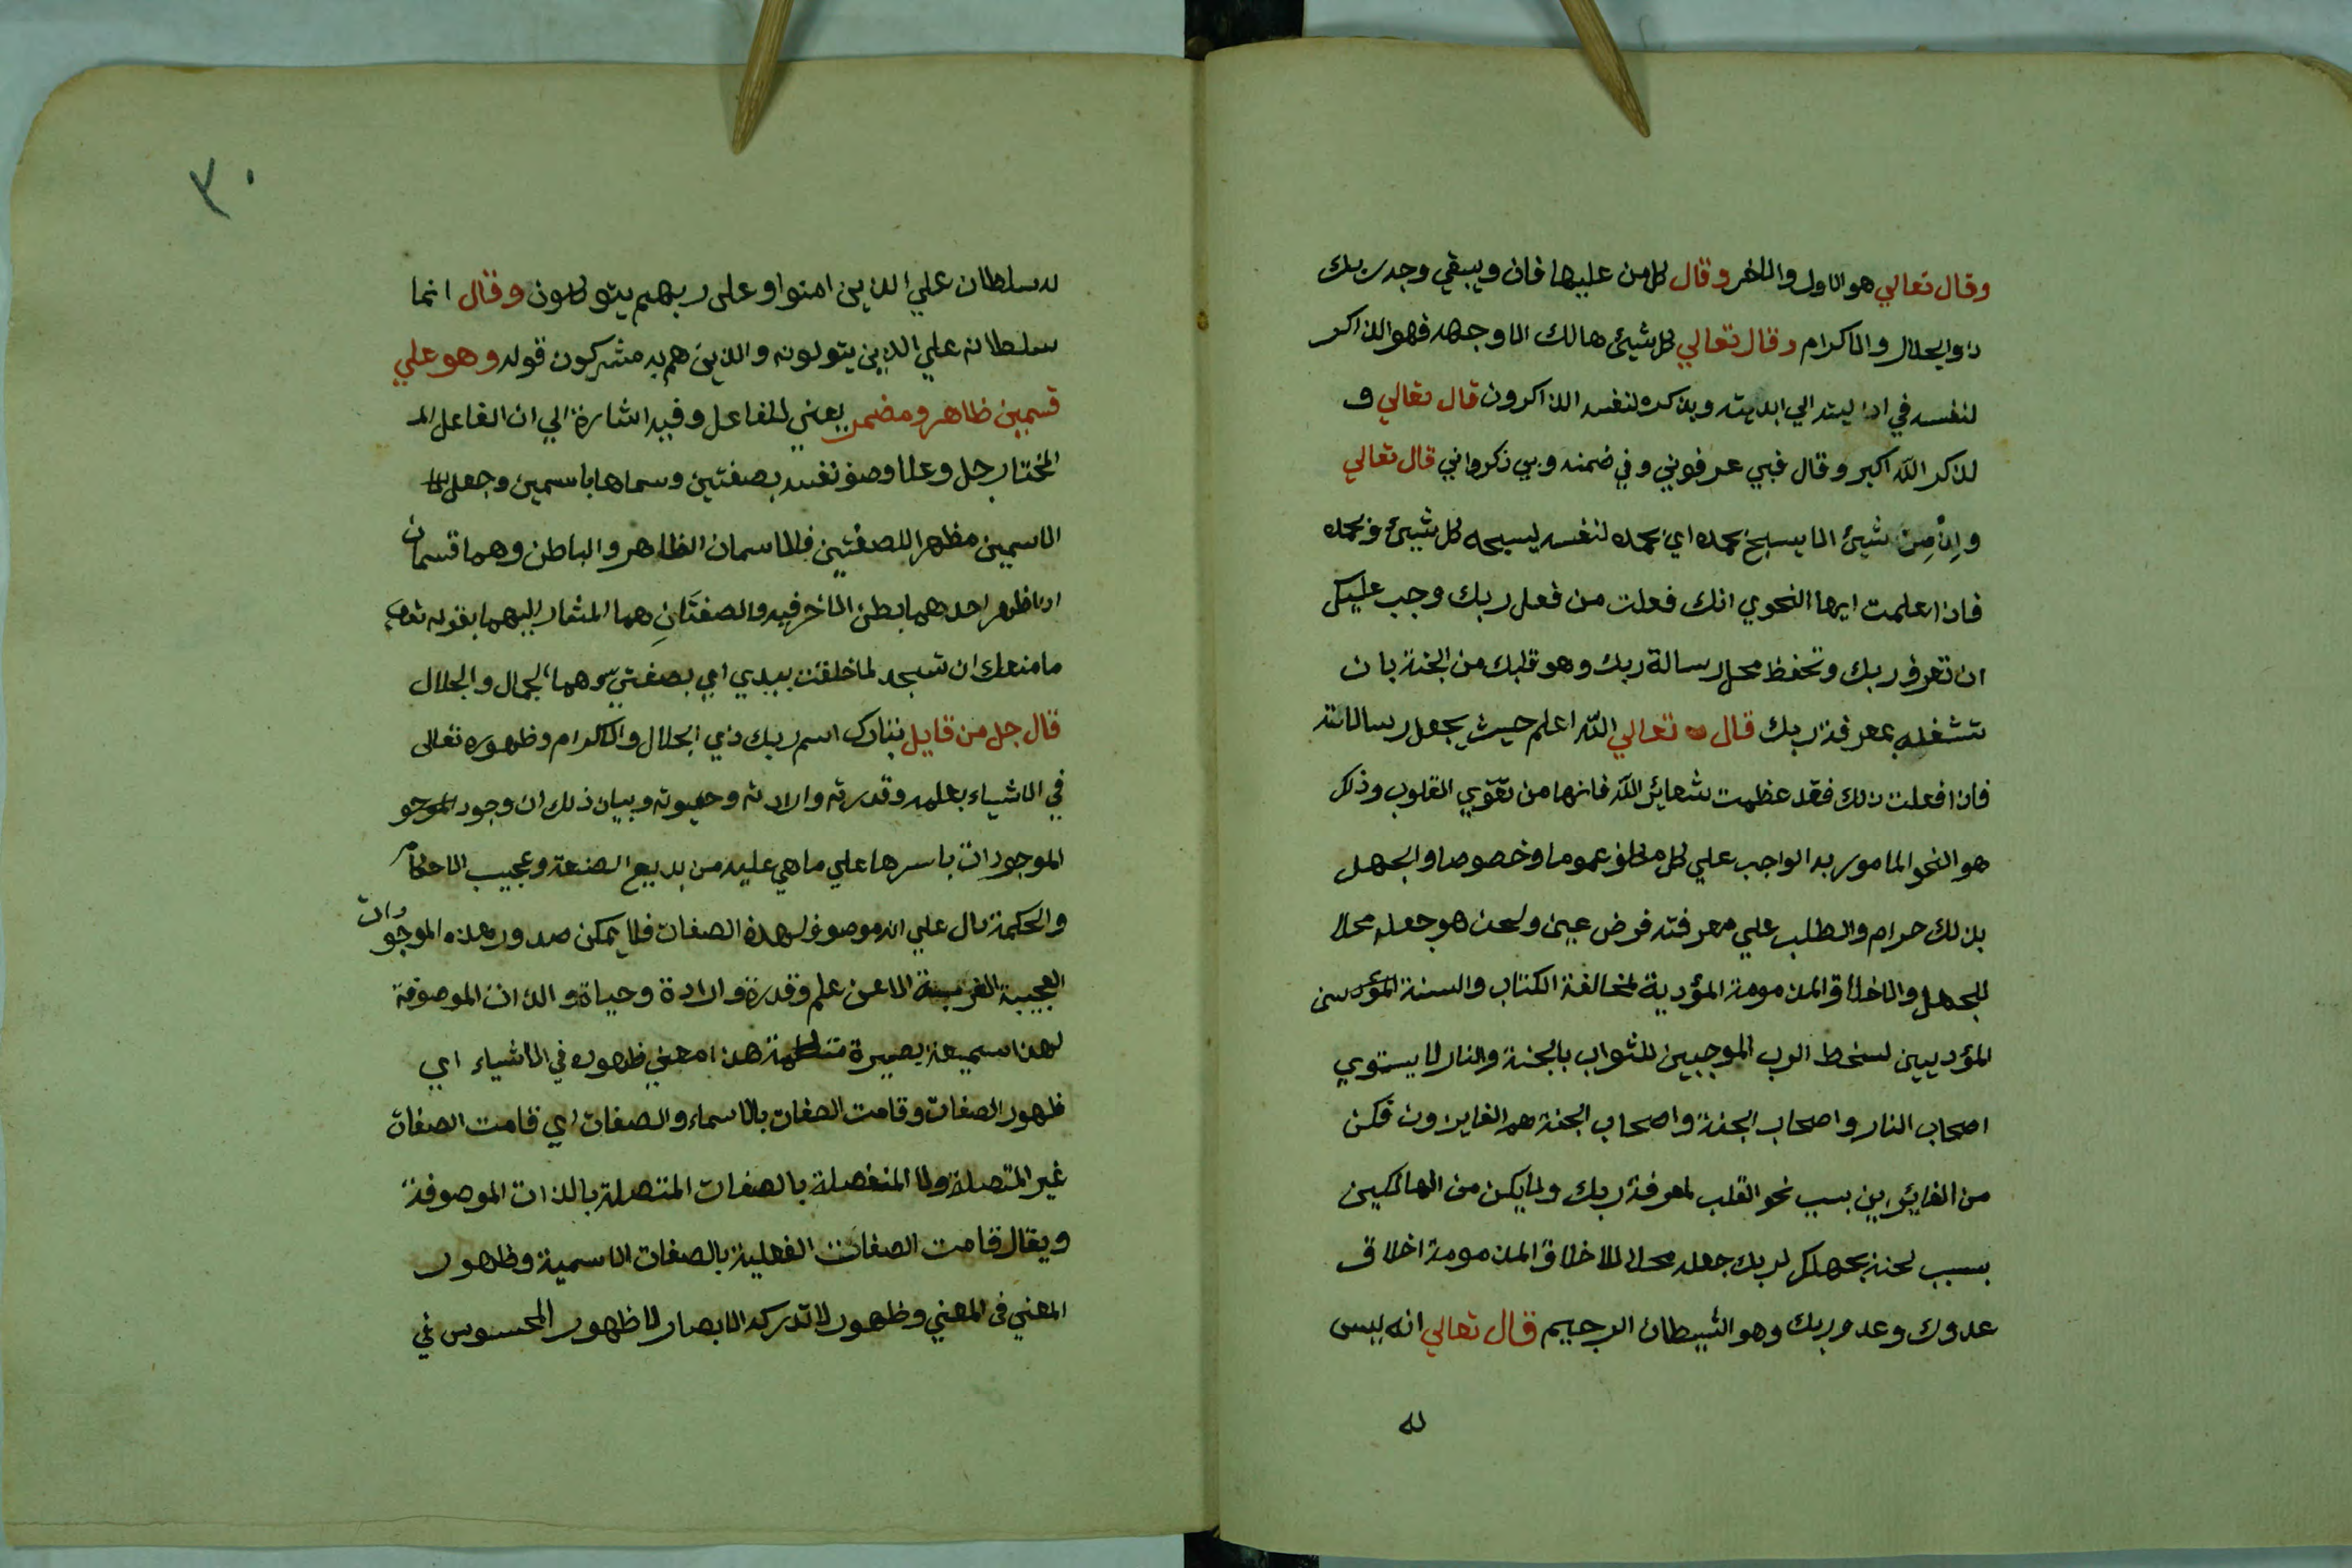 وقال تعالي هو الاول والاخر وقال كل من عليها فان ويبقي وجه ربك
ذو الجلال والاكرام وقال تعالي كل شيئ هالك الا وجهه فهو الذاكر
لنفسه في ازليته الي ابديته وبذكره لنفسه الذاكرون قال تعالي و
لذكر الله اكبر وقال فبي عرفوني وفي ضمنه وبي ذكروني قال تعالي
وإنْ مِنْ شيئ الا يسبح بحمده اي بحمده لنفسه يسبحه كل شيئ وبحمده
فاذا علمت ايها النحوي انك فعلت من فعل ربك وجب عليك
ان تعرف ربك وتحفظ محل رسالة ربك وهو قلبك من الجنة بان
تشغله بمعرفة ربك قال تعالي الله اعلم حيث يجعل رسالاته
فاذا فعلت ذلك فقد عظمت شعاير الله فانها من تقوي القلوب وذلك
هو النحو المامور به الواجب علي كل مكلف عموما وخصوصا والجهل
بذلك حرام والطلب علي معرفته فرض عين ولحن هو جعله محلا
للجهل والاخلاق المذمومة المؤدية لمخالفة الكتاب والسنة
المؤديين لسخط الرب الموجبين للثواب بالجنة والنار لا يستوي
اصحاب النار واصحاب الجنة واصحاب الجنة هم الفايزون فكن
من الفايزين بسبب نحو القلب لمعرفة ربك ولا يكن من الهالكين
بسبب لحنه بجهلك لربك جعله محلا للاخلاق المذمومة اخلاق
عدوك وعدو ربك وهو الشيطان الرجيم قال تعالي انه ليس
له
٣٠
له سلطان علي الذين امنوا وعلى ربهم يتوكلون وقال انما
سلطانه علي الذين يتولونه والذين هم به مشركون قوله وهو علي
قسمين ظاهر ومضمر يعني للفاعل وفيه اشارة الي ان الفاعل الم
المختار جل وعلا وصف نفسه بصفتين وسماها باسمين وجعل
الاسمين مظهرا للصفتين فالاسمان الظاهر والباطن وهما قسمان
اذا ظهر احدهما بطن الاخر فيه والصفتَانِ هما المشار اليهما بقوله تعالي
ما منعك ان تسجد لما خلقت بيدي اي بصفتي وهما الجمال والجلال
قال جل من قايل تبارك اسم ربك ذي الجلال والاكرام وظهوره تعالى
في الاشياء بعلمه وقدرته وارادته وحيوته وبيان ذلك ان وجود الموجو
الموجودات باسرها علي ما هي عليه من بديع الصنعة وعجيب الاحكام
والحكمة دال علي انه موصوف لهذه الصفات فلا يمكن صدور هذه الموجودات
العجيبة الغريبة الا عن علم وقدرة وارادة وحياة والذات الموصوفة
لهذا سميعة بصيرة متكلمة هذا معني ظهوره في الاشياء اي
ظهور الصفات وقامت الصفات بالاسماء والصفات اي قامت الصفات
غير المتصلة ولا المنفصلة بالصفات المتصلة بالذات الموصوفة
ويقال قامت الصفات الفعلية بالصفات الاسمية وظهور
المعني في المعني وظهور لا تدركه الابصار لا ظهور المحسوس في